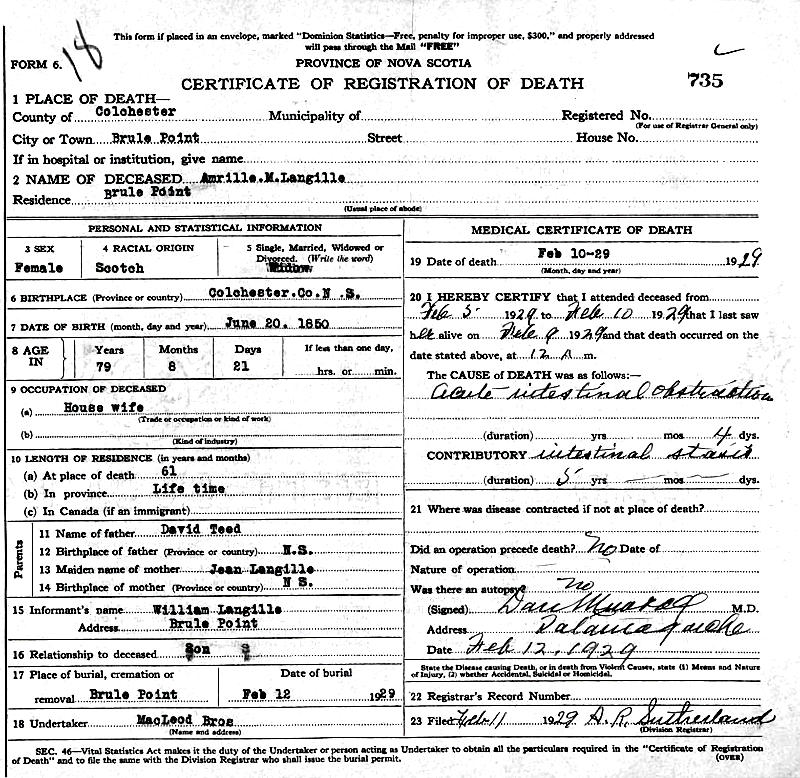 18
This form if placed in an envelope, marked "Dominion Statistics—Free, penalty for improper use, $300," and properly addressed
will pass through the Mail "FREE"
FORM 6.
PROVINCE OF NOVA SCOTIA
CERTIFICATE OF REGISTRATION OF DEATH
735
1 PLACE OF DEATH—
County of Colchester Municipality of Registered No.
(For use of Registrar General only)
City or Town Brule Point Street House No.
If in hospital or institution, give name
2 NAME OF DECEASED Amrille.M.Langille
Residence Brule Point
(Usual place of abode)
PERSONAL AND STATISTICAL INFORMATION
3 SEX 4 RACIAL ORIGIN 5 Single, Married, Widowed or
Divorced. (Write the word)
Female Scotch Widow
6 BIRTHPLACE (Province or country) Colchester.Co.N .S.
7 DATE OF BIRTH (month, day and year) June 20. 1850
8 AGE IN Years Months Days If less than one day,
79 8 21 hrs. or min.
9 OCCUPATION OF DECEASED
(a) House wife
(Trade or occupation or kind of work)
(b)
(Kind of industry)
10 LENGTH OF RESIDENCE (in years and months)
(a) At place of death 61
(b) In province Life time
(c) In Canada (if an immigrant)
Parents
11 Name of father David Teed
12 Birthplace of father (Province or country) N.S.
13 Maiden name of mother Jean Langille
14 Birthplace of mother (Province or country) N S.
15 Informant's name William Langille
Address Brule Point
16 Relationship to deceased Son
17 Place of burial, cremation or Date of burial
removal Brule Point Feb 12 1929
18 Undertaker MacLeod Bros
(Name and address)
MEDICAL CERTIFICATE OF DEATH
19 Date of death Feb 10-29 1929
(Month, day and year)
20 I HEREBY CERTIFY that I attended deceased from
Feb 5 1929 to Feb 10 1929 that I last saw
her alive on Feb 9 1929 and that death occurred on the
date stated above, at 12 A m.
The CAUSE OF DEATH was as follows:—
Acute intestinal obstruction
(duration) yrs mos 4 dys.
CONTRIBUTORY intestinal stasis
(duration) 5 yrs — mos — dys.
21 Where was disease contracted if not at place of death?
Did an operation precede death? No Date of
Nature of operation
Was there an autopsy? no
(Signed) Dan Murray M.D.
Address Tatamagouche
Date Feb 12, 1929
State the Disease causing Death, or in death from Violent Causes, state (1) Means and Nature
of Injury, (2) whether Accidental, Suicidal or Homicidal.
22 Registrar's Record Number
23 Filed Feb 11 1929 A. R. Sutherland
(Division Registrar)
SEC. 46—Vital Statistics Act makes it the duty of the Undertaker or person acting as Undertaker to obtain all the particulars required in the "Certificate of Registration
of Death" and to file the same with the Division Registrar who shall issue the burial permit.
(OVER)